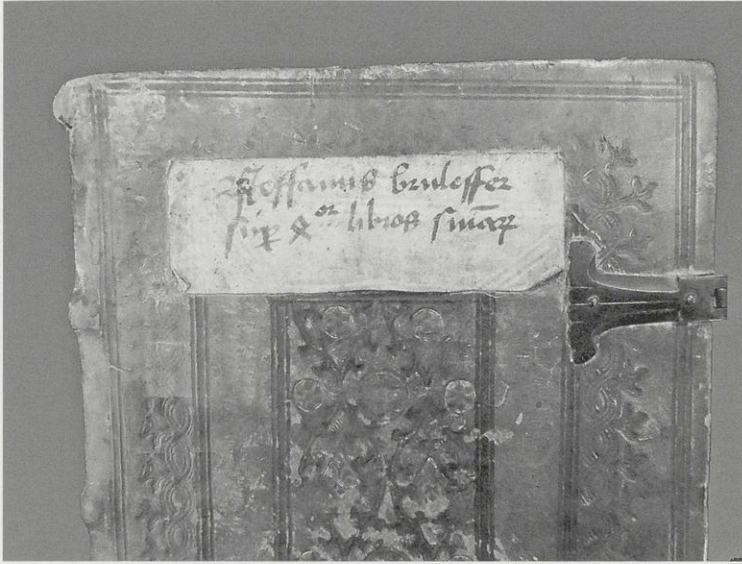 Steffanus bruleffer
sup 4or libros sniarꝝ